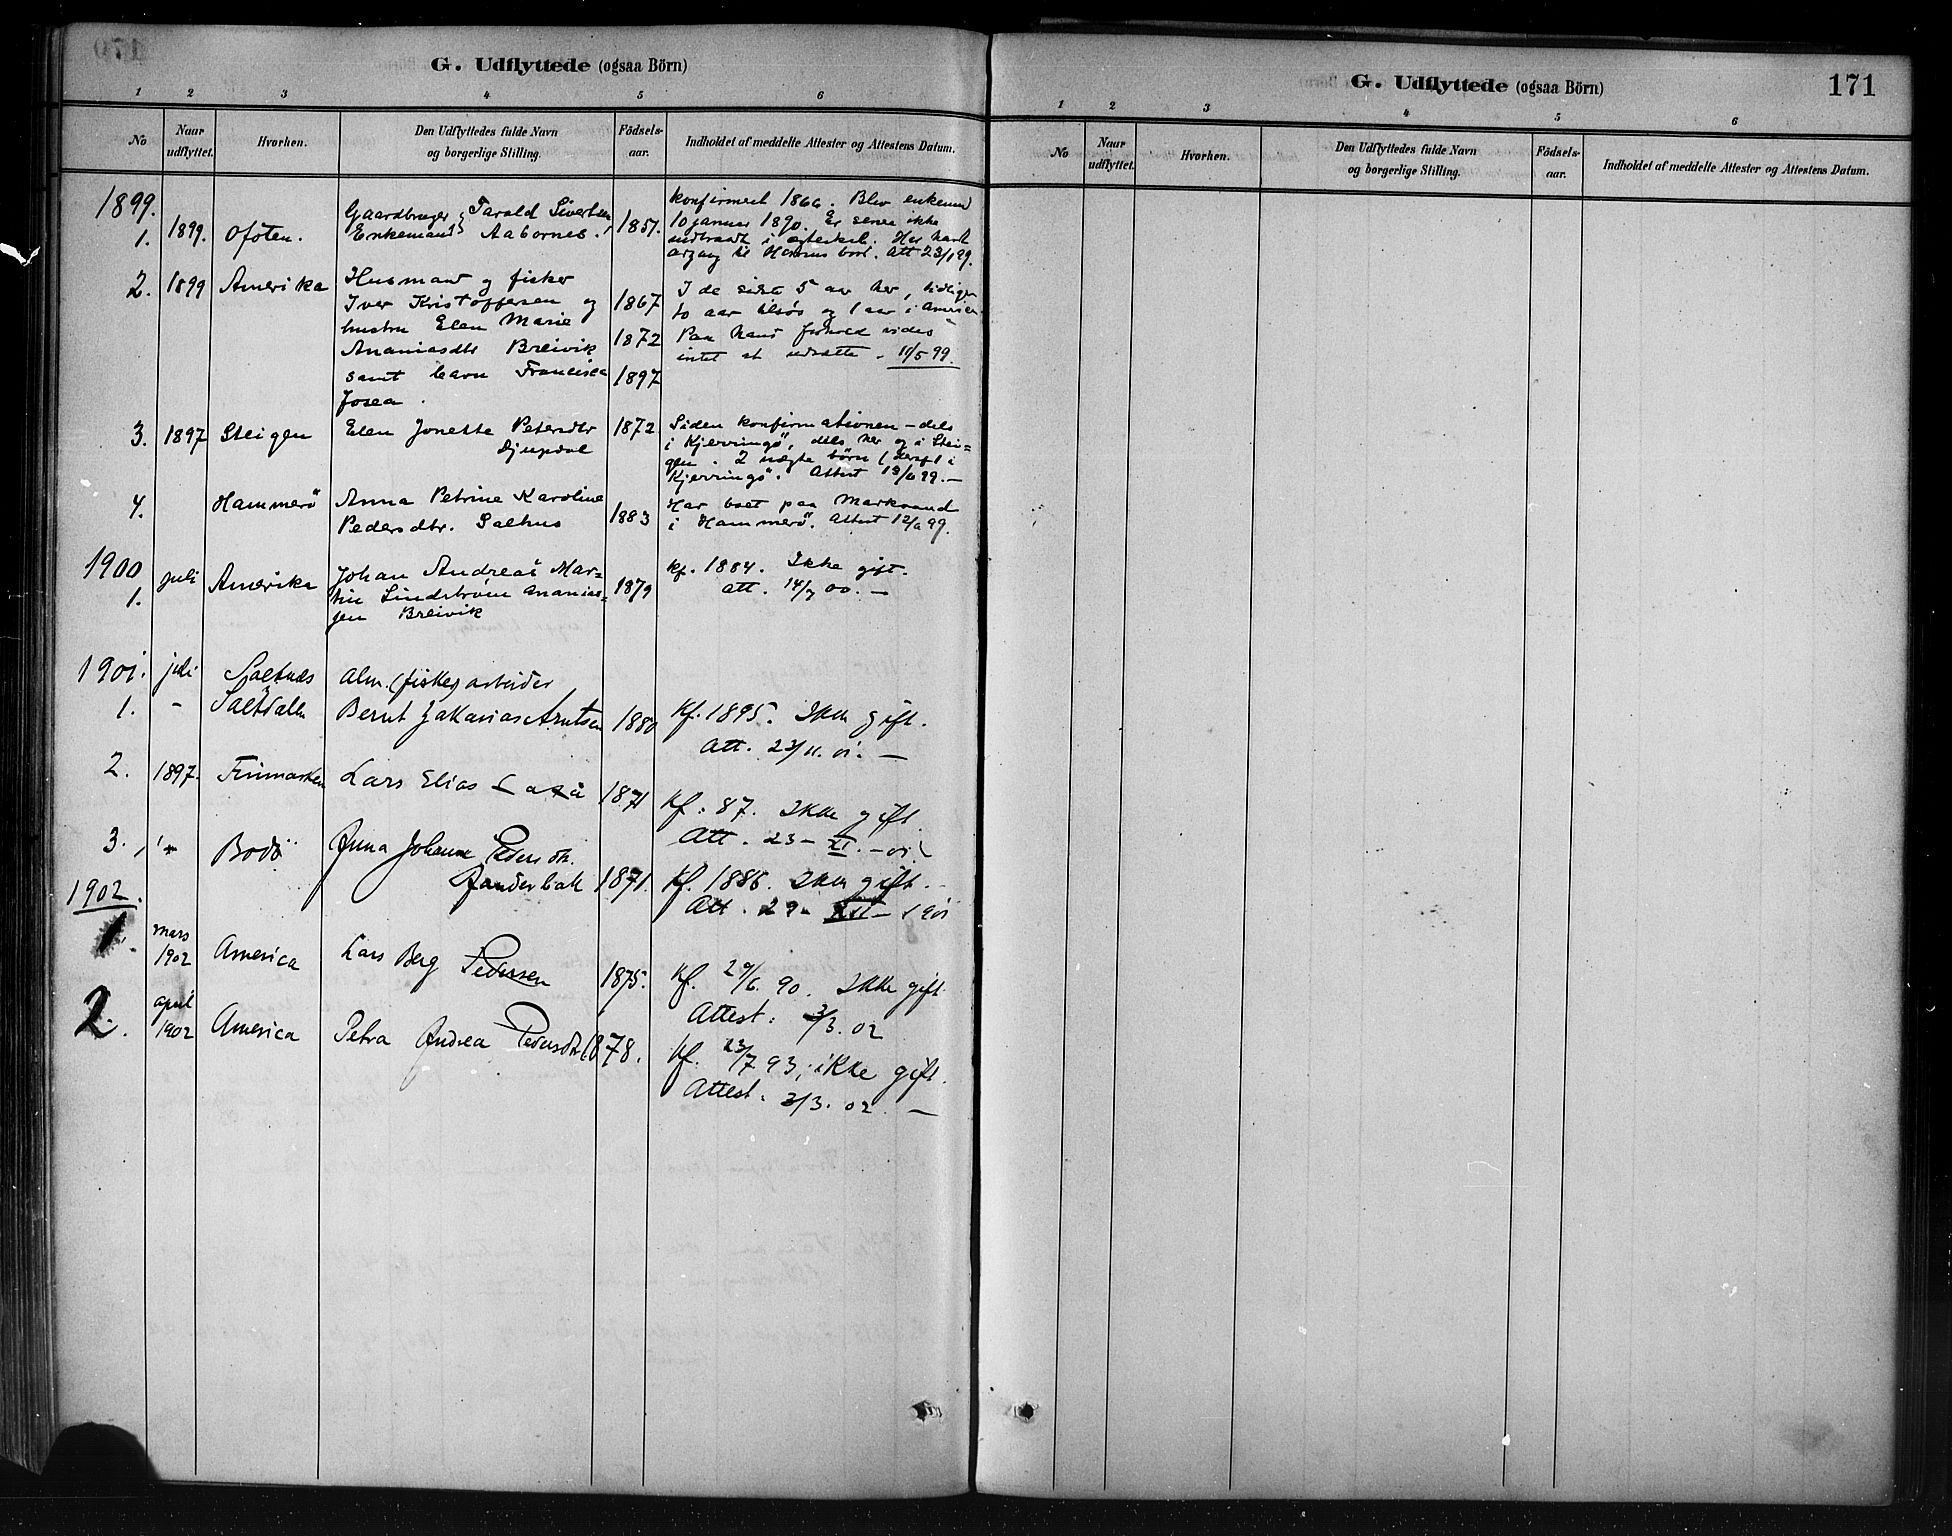 G. Udflyttede (ogsaa Börn)
1 2 3 4 5 6
No
Naar udflyttet.
Hvorhen.
Den Udflyttedes fulde Navn og borgerlige Stilling.
Födsels-aar.
Indholdet af meddelte Attester og Attestens Datum.
1899.
1. 1899. Ofoten. Gaardbruger Tarald Sivertsen
Enkemand Aabornes. 1857.
konfirmert 1866. Blev enkemand
10 januar 1890. Er senere ikke
indtraadt i
23/1 99.
2. 1899 Amerika
Husmand og fisker
Iver Kristoffersen og 1867
hustru Elen Marie
Ananiasdtr Breivik 1872
samt barn Francisca 1897
Josea.
I de sidst 5 aar her, tidliger
to aar og 1 aar i Amerika
Paa hans forhold vides
intet at udsætte. 11/5 99.
3. 1897 Steigen Elen Jonette Petersdtr 1872
Djupdal
Siden konfirmationen - dels
i Kjerringö, dels her og i Stei-
gen. 2 uægte börn (deraf 1 i
Kjerringö. Attest 13/6 99. -
4. Hammerö Anna Petrine Karoline
Pedersdtr. Saelhus 1883
Har boet paa Markvand
i Hammerö. Attest 99.
1900
1. juli Amerika Johan Andreas Mar-
tin Lindström Ananias- 1879
sen Breivik
kf. 1884. Ikke gift.
att. 14/7 00. -
1901. juli Saltnes Alm. (fisker) arbeider
1. - Saltdalen Bernt Zakarias Arntsen 1880
Kf. 1895. Ikke gift.
Att. 23/11. 01. -
2. 1897. Finmarken Lars Elias 1871
Kf. 87. Ikke gift
Att. 23 - XI. - 01.
3. Bodö Anna Johanna Pedersdtr.
1871.
Kf. 1886. Ikke gift. -
Att. 29 - XII - 1901
1902.
1. mars 1902 America Lars Berg Pedersen 1875.
Kf. 29/6. 90. Ikke gift
Attest: 3/3. 02
2. april 1902 America Petra Andrea Pedersdtr 1878.
Kf. 23/7 93; ikke gift.
Attest: 3/3. 02. -
G. Udflyttede (ogsaa Börn)
171
1 2 3 4 5 6
No
Naar udflyttet.
Hvorhen.
Den Udflyttedes fulde Navn og borgerlige Stilling.
Födsels-aar.
Indholdet af meddelte Attester og Attestens Datum.